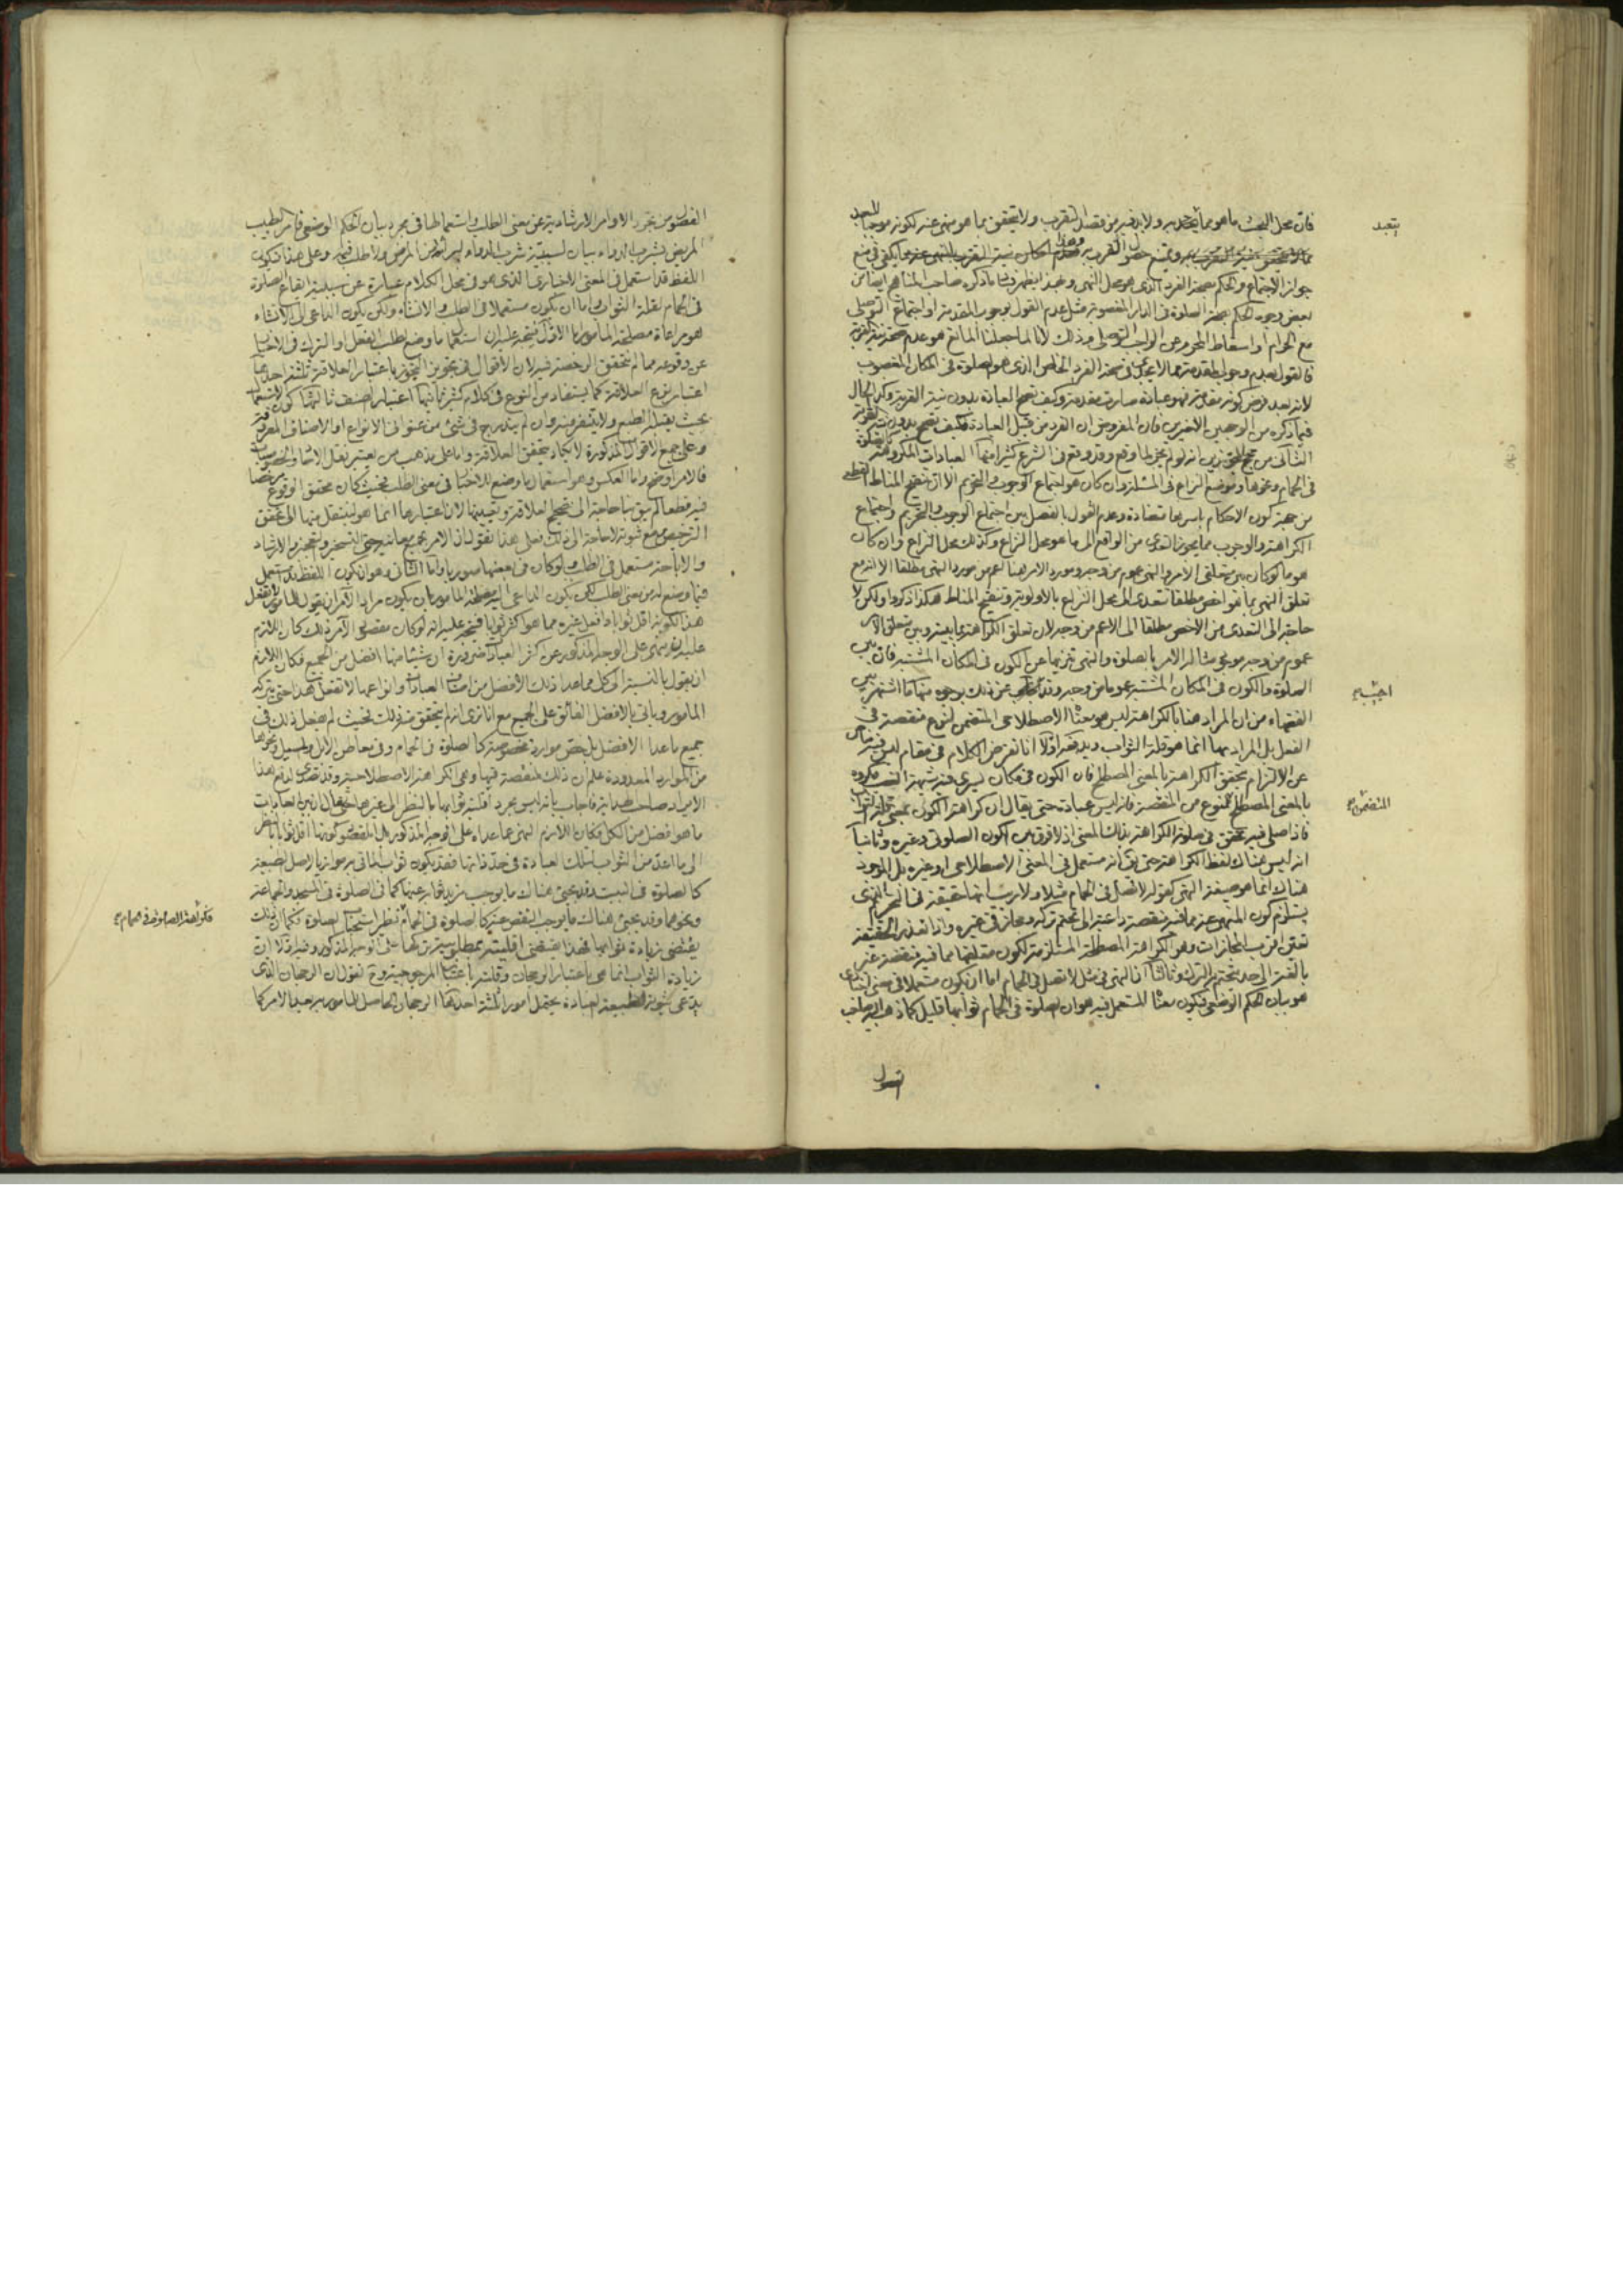 فان محل البحث ما هو مما يتحد به ولا بد فيه من قصد التقرب ولا يتحقق بما هو منهى عنه لكونه موجبا للبعد
يتعبد
جواز الاجتماع والحكم بصحة الفرد الذى هو محل النهى وهذا يظهر ما ذكره صاحب المناهج ايضا من
بعض وجوه الحكم بصحة الصلوة فى الدار المغصوبة مثل عدم القول بوجوب المقدمة او اجتماع التوصلى
مع الحرام او اسقاط المحرم عن الواجب التوصلى وذلك لانا لما جعلنا المانع هو عدم صحة نية القربة
فالقول بعدم وجوب المقدمة مما لا يجدى فى صحة الفرد الخاص الذى هو الصلوة فى المكان المغصوب
لانه بعد فرض كونه مقدمة فهو عبادة صارت مقدمة وكيف تصح العبادة بدون نية القربة وكذا الحال
فيما ذكره من الوجهين الاخيرين فان المفروض ان الفرد من قبيل العبادة فكيف تصح بدون القربة
الثانى من حجج المجوزين انه لو لم يجز لما وقع وقد وقع فى الشرع كثيرا منها العبادات المكروهة كالصلوة
فى الحمام ونحوها وموضع النزاع فى المسئلة وان كان هو اجتماع الوجوب والتحريم الا ان تنقيح المناط القطعى
من جهة كون الاحكام باسرها متضادة وعدم القول بالفصل بين اجتماع الوجوب والتحريم واجتماع
الكراهة والوجوب مما يجوز التعدى من الواقع الى ما هو محل النزاع وكذلك محل النزاع وان كان
هو ما لو كان بين متعلقى الامر والنهى عموم من وجه ومورد الامر هنا اعم من مورد النهى مطلقا الا انه مع
تعلق النهى بما هو اخص مطلقا نتعدى الى محل النزاع بالاولوية وتنقيح المناط هكذا ذكروا ولكن لا
حاجة الى التعدى من الاخص مطلقا الى الاعم من وجه لان تعلق الكراهة بما بينه وبين متعلق الامر
عموم من وجه موجود مثاله الامر بالصلوة والنهى تنزيها عن الكون فى المكان المشتبه فان بين
الصلوة والكون فى المكان المشتبه عموما من وجه وقد اجيب عن ذلك بوجوه منها ما اشتهر بين
اجيب
الفقهاء من ان المراد هنا بالكراهة ليس هو معناها الاصطلاحى المتضمن لنوع منقصة فى
الفعل بل المراد بها انما هو قلة الثواب ويدفعه اولا انا نفرض الكلام فى مقام ليس فيه مناص
عن الالتزام بتحقق الكراهة بالمعنى المصطلح فان الكون فى مكان يسرى فيه شبهة الغصب مكروه
بالمعنى المصطلح لنوع من المنقصة فانه ليس عبادة حتى يقال ان كراهة الكون بمعنى قلة الثواب
المتضمن
فاذا صلى فيه تحقق فى صلوته الكراهة بذلك المعنى اذ لا فرق بين الكون الصلوتى وغيره وثانيا
انه ليس هناك لفظ الكراهة حتى يقال انه مستعمل فى المعنى الاصطلاحى او غيره بل الموجود
هناك انما هو صيغة النهى كقوله لا تصل فى الحمام مثلا ولا ريب انها حقيقة فى التحريم الذى
يستلزم كون المنهى عنه مما فيه منقصة داعية الى تحتم تركه ومجاز فى غيره واذا تعذر الحقيقة
تعين اقرب المجازات وهو الكراهة المصطلحة المستلزمة لكون متعلقها مما فيه منقصة غير
بالغة الى حد يتحتم به الترك وثالثا ان النهى فى مثل لا تصل فى الحمام اما ان يكون مستعملا فى معنى
هو بيان الحكم الوضعى فيكون معناها المستعمل فيه هو ان الصلوة فى الحمام ثوابها قليل كما ذهب اليه صاحب
الفصول من تجرد الاوامر الارشادية عن معنى الطلب واستعمالها فى مجرد بيان الحكم الوضعى فامر الطبيب
المريض بشرب الدواء بيان لسببية شرب الدواء لبرئه من المرض ولا طلب فيه وعلى هذا فيكون
اللفظ قد استعمل فى المعنى الاخبارى الذى هو فى محل الكلام عبارة عن سببية ايقاع الصلوة
فى الحمام لقلة الثواب واما ان يكون مستعملا فى الطلب والانشاء ولكن يكون الداعى الى الانشاء
هو مراعاة مصلحة المأمور اما الاول فيتجه عليه ان استعمال ما وضع لطلب الفعل او الترك فى الاخبار
عن وقوعه مما لم يتحقق الرخصة فيه لان الاقوال فى تجويز التجوز باعتبار العلاقة ثلثة احدها
اعتبار نوع العلاقة كما يستفاد من النوع فى كلام كثير ثانيها اعتبار الصنف ثالثها كون الاستعمال
بحيث يقبله الطبع ولا يتنفر منه وان لم يندرج فى شئ من عنوانى الانواع او الاصناف المعروفة
وعلى جميع الاقوال المذكورة لا يكاد يتحقق العلاقة واما على مذهب من يعتبر نقل الاحاد والخصوصيات
فالامر اوضح واما العكس وهو استعمال ما وضع للاخبار فى معنى الطلب فحيث كان محقق الوقوع مرخصا
فيه قطعا لم يبق بنا حاجة الى تصحيح العلاقة وتعيينها لان اعتبارها انما هو لينتقل منها الى تحقق
الترخيص ومع ثبوته لا حاجة الى ذلك فعلى هذا نقول ان الامر بجميع معانيه حتى التسخير والتعجيز والارشاد
والاباحة مستعمل فى الطلب ولو كان فى بعضها صوريا واما الثانى وهو ان يكون اللفظ قد استعمل
فيما وضع له من معنى الطلب لكن يكون الداعى اليه مصلحة المأمور بان يكون مراد الآمر ان يقول للمأمور لا تفعل
هذا لكونه اقل ثوابا وافعل غيره مما هو اكثر ثوابا فيتجه عليه انه لو كان مقصود الآمر ذلك كان اللازم
عليه ان ينهى على الوجه المذكور عن اكثر العبادات ضرورة ان شيئا منها افضل من الجميع فكان اللازم
ان يقول بالنسبة الى كل مما عدا ذلك الافضل من اصناف العبادات وانواعها لا تفعل هذا حتى يتركه
المأمور وياتى بالافضل الفائق على الجميع مع انا نرى انه لم يتحقق منه ذلك فحيث لم يفعل ذلك فى
جميع ما عدا الافضل بل خص موارد مخصوصة كالصلوة فى الحمام وفى معاطن الابل والمسيل ونحوها
من الموارد المعدودة علم ان ذلك لمنقصة فيها وهى الكراهة الاصطلاحية وقد تصدى لدفع هذا
الايراد صاحب هداية فاجاب بانه ليس مجرد اقلية ثوابها بالنظر الى غيرها حتى يقال ان بين العبادات
ما هو افضل من الكل فكان اللازم النهى عما عداه على الوجه المذكور بل المقصود كونها اقل ثوابا بالنظر
الى ما اعد من الثواب لتلك العبادة فى حد ذاتها فقد يكون ثواب الماتى به موازيا لاصل الطبيعة
كالصلوة فى البيت وقد يجئ هناك ما يوجب مزيد ثوابه عنها كما فى الصلوة فى المسجد والجماعة
ونحوهما وقد يجئ هناك ما يوجب النقص عنه كالصلوة فى الحمام فنظر استحباب الصلوة فكما ان ذلك
فكراهة الصلوة فى الحمام
يقتضى زيادة ثوابها فهذا يقتضى اقلية مطلوبيتها على الوجه المذكور وفيه اولا ان
زيادة الثواب انما هى باعتبار الرجحان وقلته باعتبار المرجوحية نقول ان الرجحان الذى
يدعى ثبوته لطبيعة العبادة يحتمل امورا ثلثة احدها الرجحان الحاصل للمأمور به بعد الامر كما